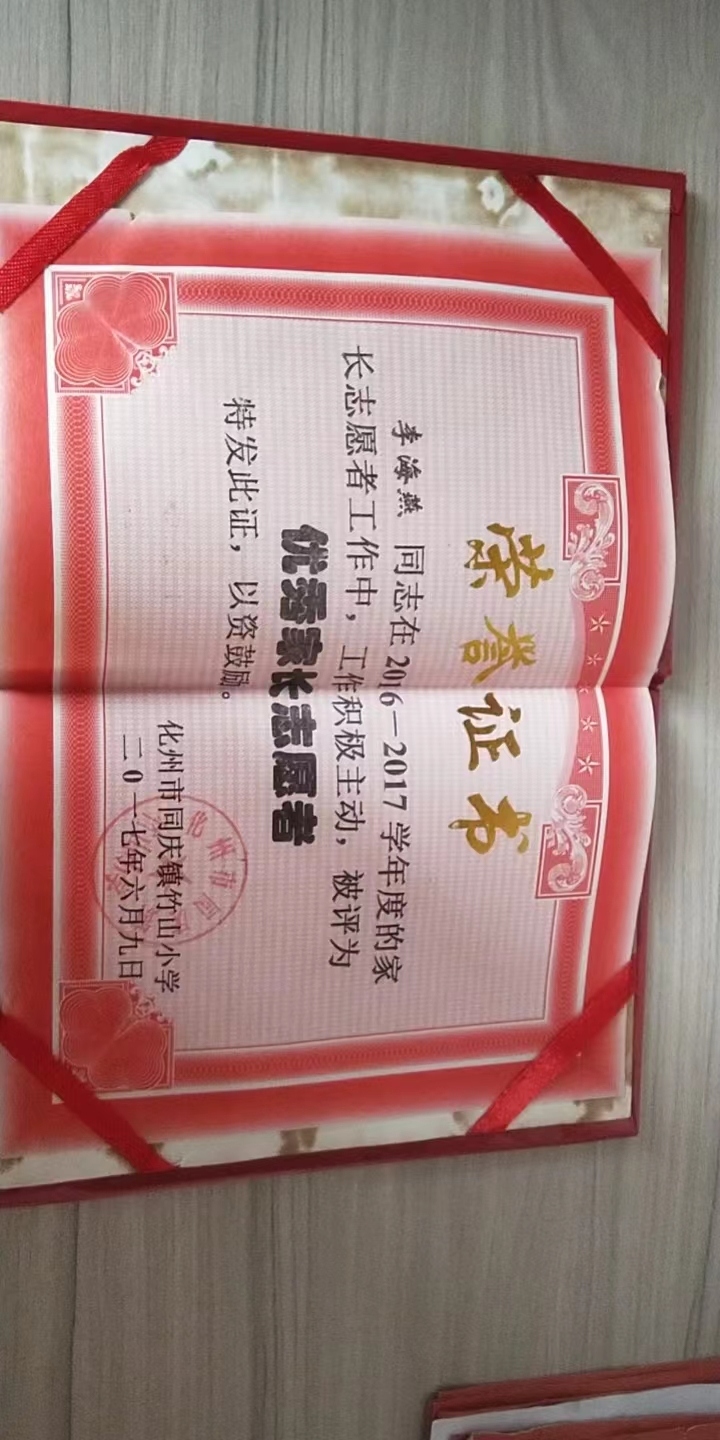 荣誉证书
李海燕 同志在2016－2017学年度的家
长志愿者工作中，工作积极主动，被评为
优秀家长志愿者
特发此证，以资鼓励。
化州市同庆镇竹山小学
二0一七年六月九日
化州市同